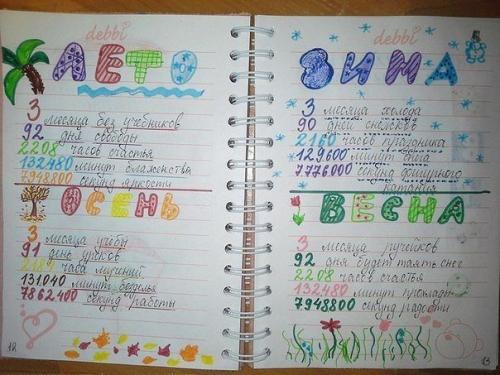 debbi
ЛЕТО
3
месяца без учебников
92 дня свободы
2208 часов счастья
132480 минут блаженства
7948800 секунд яркости
ОСЕНЬ
3
месяца учёбы
91 день уроков
2184 часа мучений
131040 минут безделья
7862400 секунд работы
12
debbi
ЗИМА
3 месяца холода
90 дней снежков
2160 часов праздника
129600 минут снега
7776000 секунд фигурного
катания
ВЕСНА
3 месяца ручейков
92 дня будет таять снег
2208 часов счастья
132480 минут прохлады
7948800 секунд радости
13